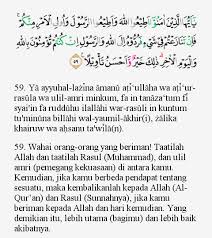 يٰٓاَيُّهَا الَّذِيْنَ اٰمَنُوْٓا اَطِيْعُوا اللّٰهَ وَاَطِيْعُوا الرَّسُوْلَ وَاُولِى الْاَمْرِ مِنْكُمْۚ
فَاِنْ تَنَازَعْتُمْ فِيْ شَيْءٍ فَرُدُّوْهُ اِلَى اللّٰهِ وَالرَّسُوْلِ اِنْ كُنْتُمْ تُؤْمِنُوْنَ بِاللّٰهِ
وَالْيَوْمِ الْاٰخِرِۗ ذٰلِكَ خَيْرٌ وَّاَحْسَنُ تَأْوِيْلًا ࣖ ٥٩
59. Yā ayyuhal-lażīna āmanū aṭī'ullāha wa aṭī'ur-
rasūla wa ulil-amri minkum, fa in tanāza'tum fī
syai'in fa ruddūhu ilallāhi war-rasūli in kuntum
tu'minūna billāhi wal-yaumil-ākhir(i), żālika
khairuw wa aḥsanu ta'wīlā(n).
59. Wahai orang-orang yang beriman! Taatilah
Allah dan taatilah Rasul (Muhammad), dan ulil
amri (pemegang kekuasaan) di antara kamu.
Kemudian, jika kamu berbeda pendapat tentang
sesuatu, maka kembalikanlah kepada Allah (Al-
Qur'an) dan Rasul (Sunnahnya), jika kamu
beriman kepada Allah dan hari kemudian. Yang
demikian itu, lebih utama (bagimu) dan lebih baik
akibatnya.